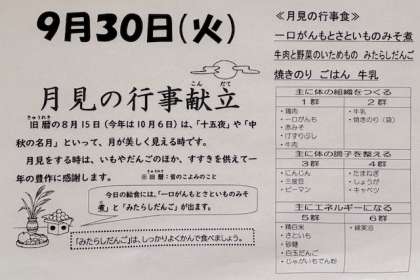 9月30日(火)
月見の行事献立
こん だて
きゅうれき
旧暦の8月15日(今年は10月6日)は、「十五夜」や「中
秋の名月」といって、月が美しく見える時です。
月見をする時は、いもやだんごのほか、すすきを供えて一
年の豊作に感謝します。
※旧暦:昔のこよみのこと
今日の給食には、「一口がんもとさといものみそ
煮」と「みたらしだんご」が出ます。
「みたらしだんご」は、しっかりよくかんで食べましょう。
≪月見の行事食≫
一口がんもとさといものみそ煮
牛肉と野菜のいためもの みたらしだんご
焼きのり ごはん 牛乳
主に体の組織をつくる
1群 2群
・鶏肉
・一口がんも
・赤みそ
・けずりぶし
・牛肉
・牛乳
・焼きのり(袋)
主に体の調子を整える
3群 4群
・にんじん
・三度豆
・ピーマン
・たまねぎ
・しょうが
・キャベツ
主にエネルギーになる
5群 6群
・精白米
・さといも
・砂糖
・白玉だんご
・じゃがいもでんぷん
・綿実油